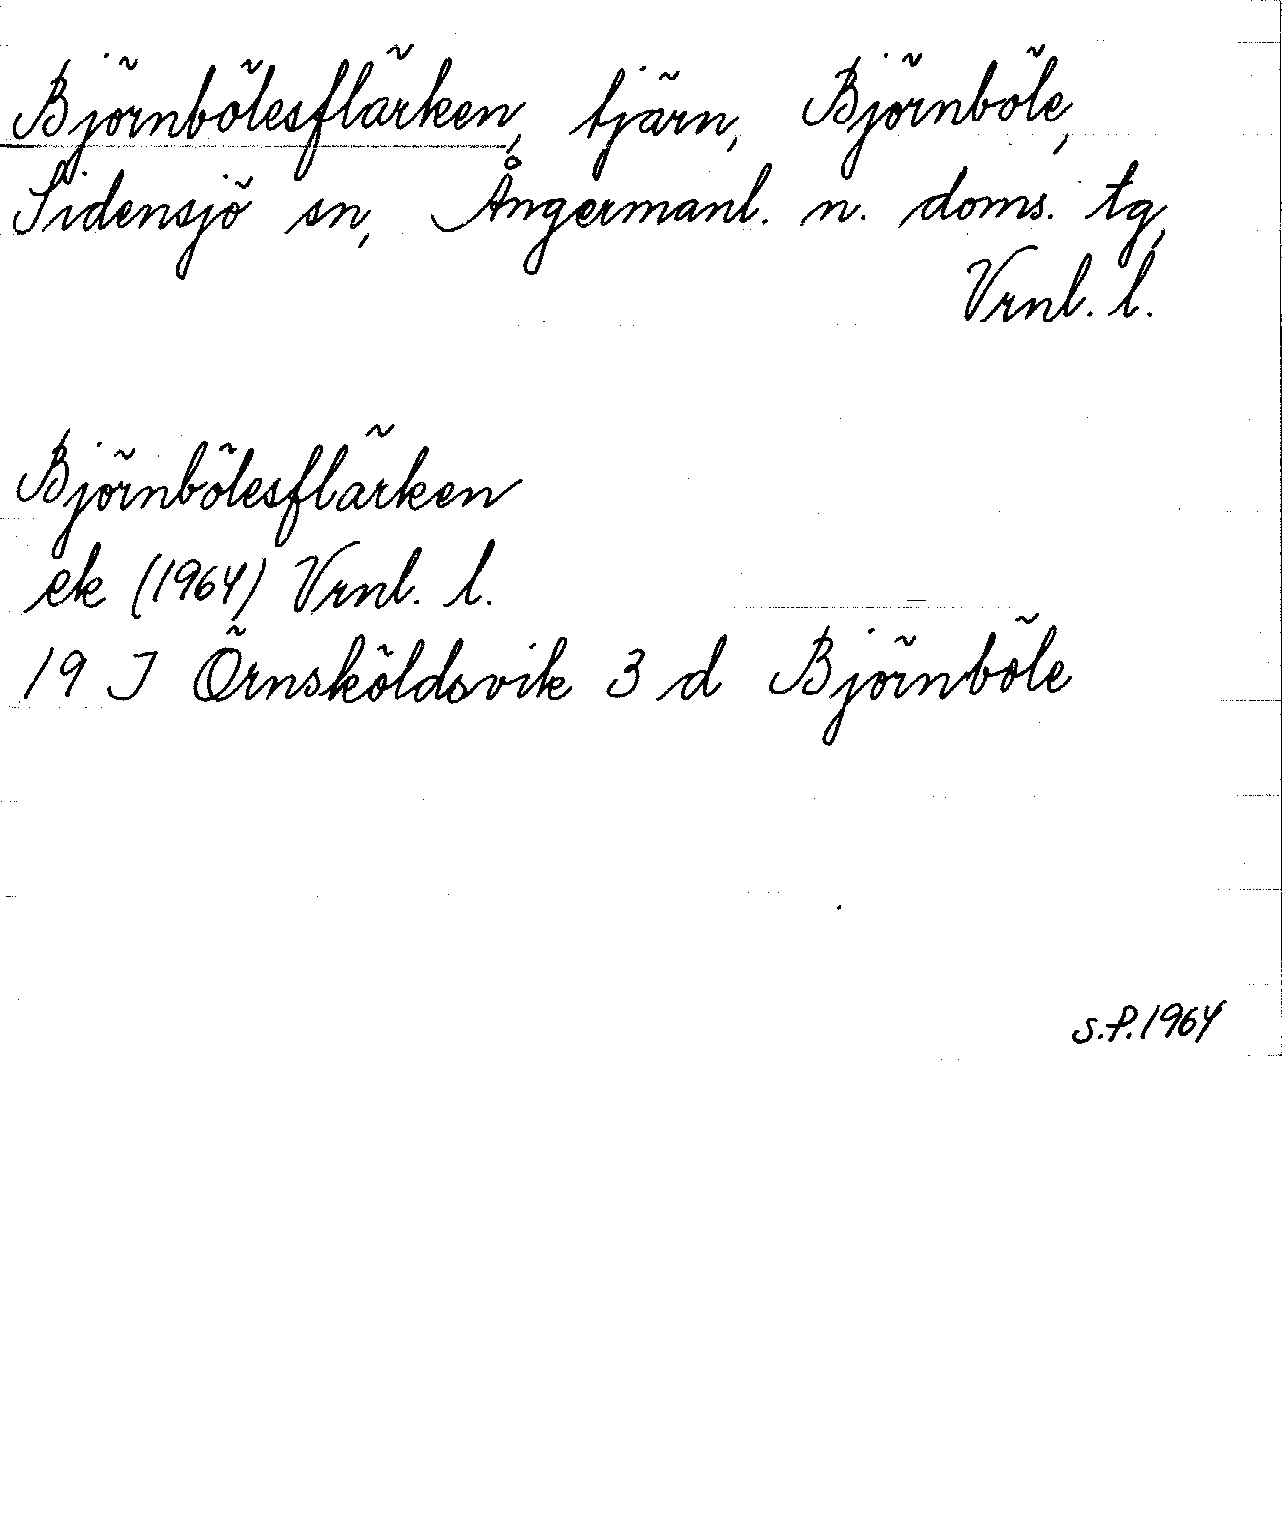 Björnbölesflärken, tjärn, Björnböle,
Sidensjö sn, Ångermanl. n. doms. tg,
Vrnl. l.
Björnbölesflärken
ek (1964) Vrnl. l.
19 J Örnsköldsvik 3 d Björnböle
S.P.1964